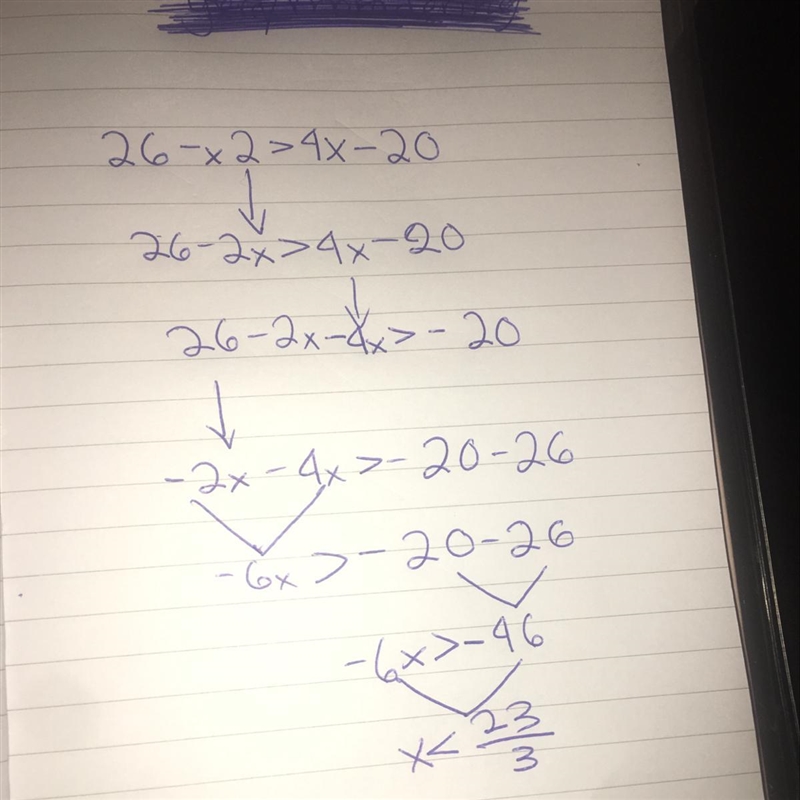 26-x2>4x-20
26-2x>4x-20
26-2x-4x>-20
-2x-4x>-20-26
-6x>-20-26
-6x>-46
x<23/3